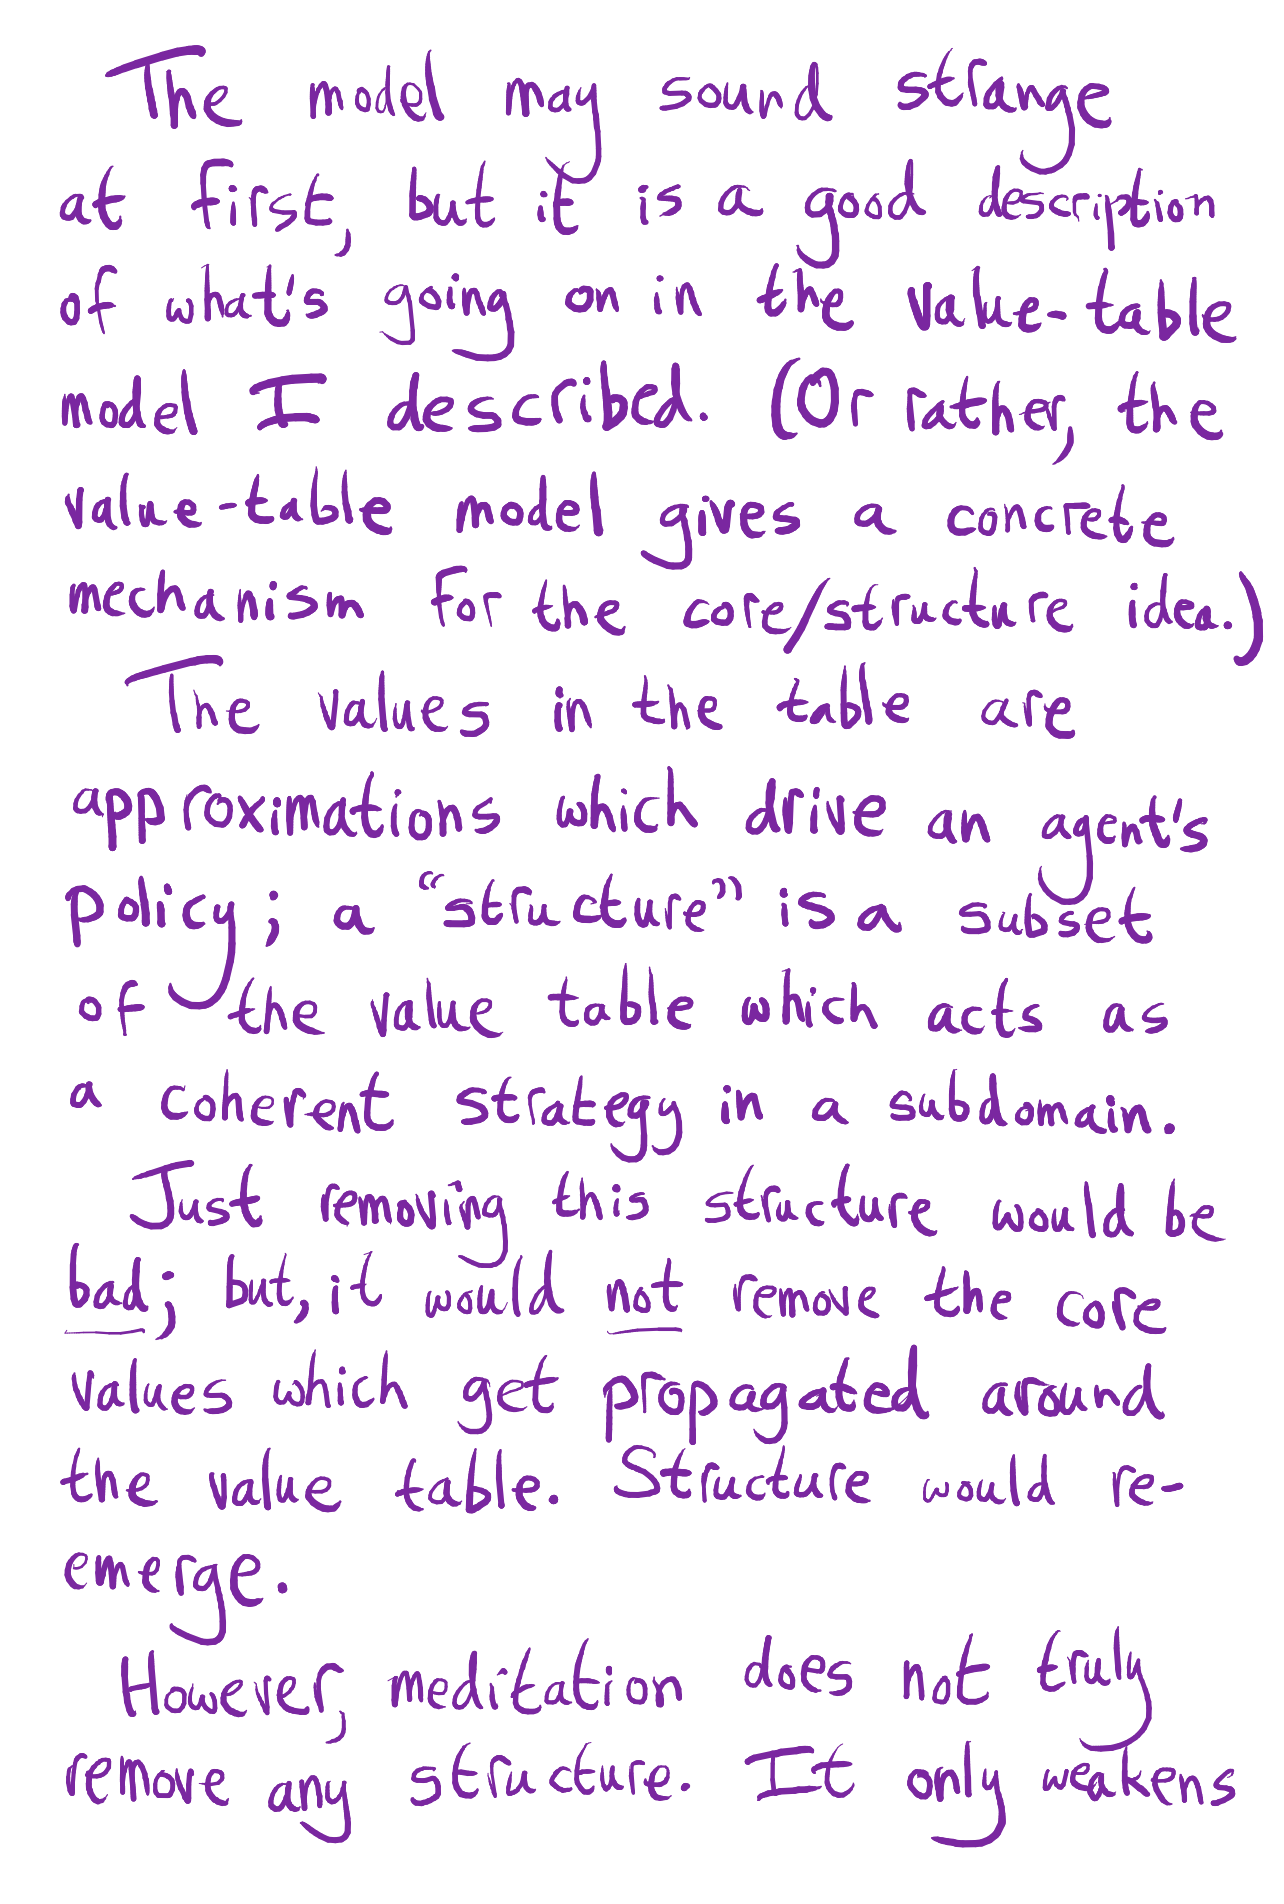 The model may sound strange
at first, but it is a good description
of what's going on in the value-table
model I described. (Or rather, the
value-table model gives a concrete
mechanism for the core/structure idea.)
The values in the table are
approximations which drive an agent's
policy; a "structure" is a subset
of the value table which acts as
a coherent strategy in a subdomain.
Just removing this structure would be
bad; but, it would not remove the core
values which get propagated around
the value table. Structure would re-
emerge.
However, meditation does not truly
remove any structure. It only weakens